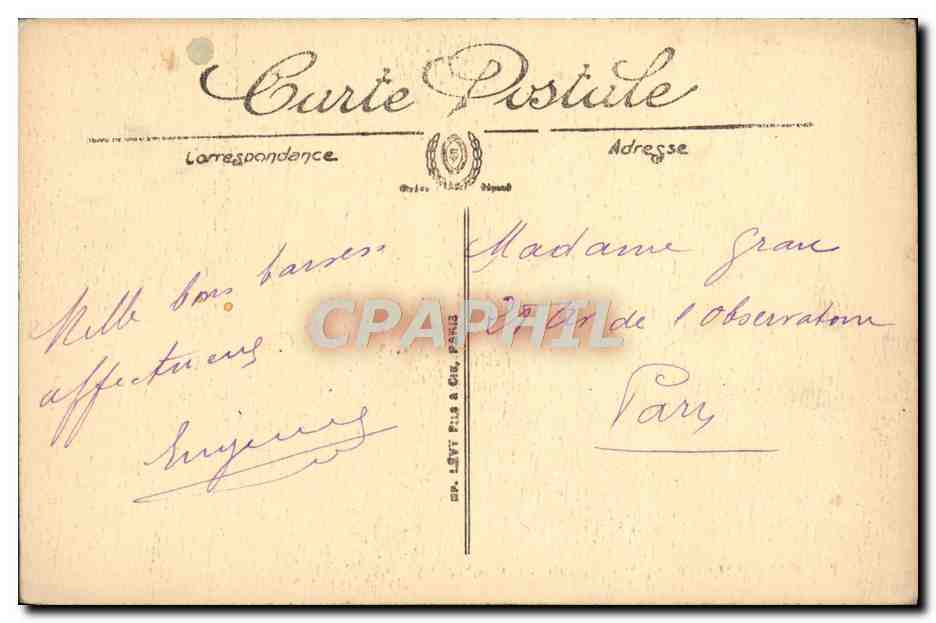 Carte Postale
Correspondance
Adresse
Mille bons baisers
affectueux
Eugénie
Madame Grau
Av de l'Observatoire
Paris
LÉVY FILS & CIE, PARIS
CPAPHIL